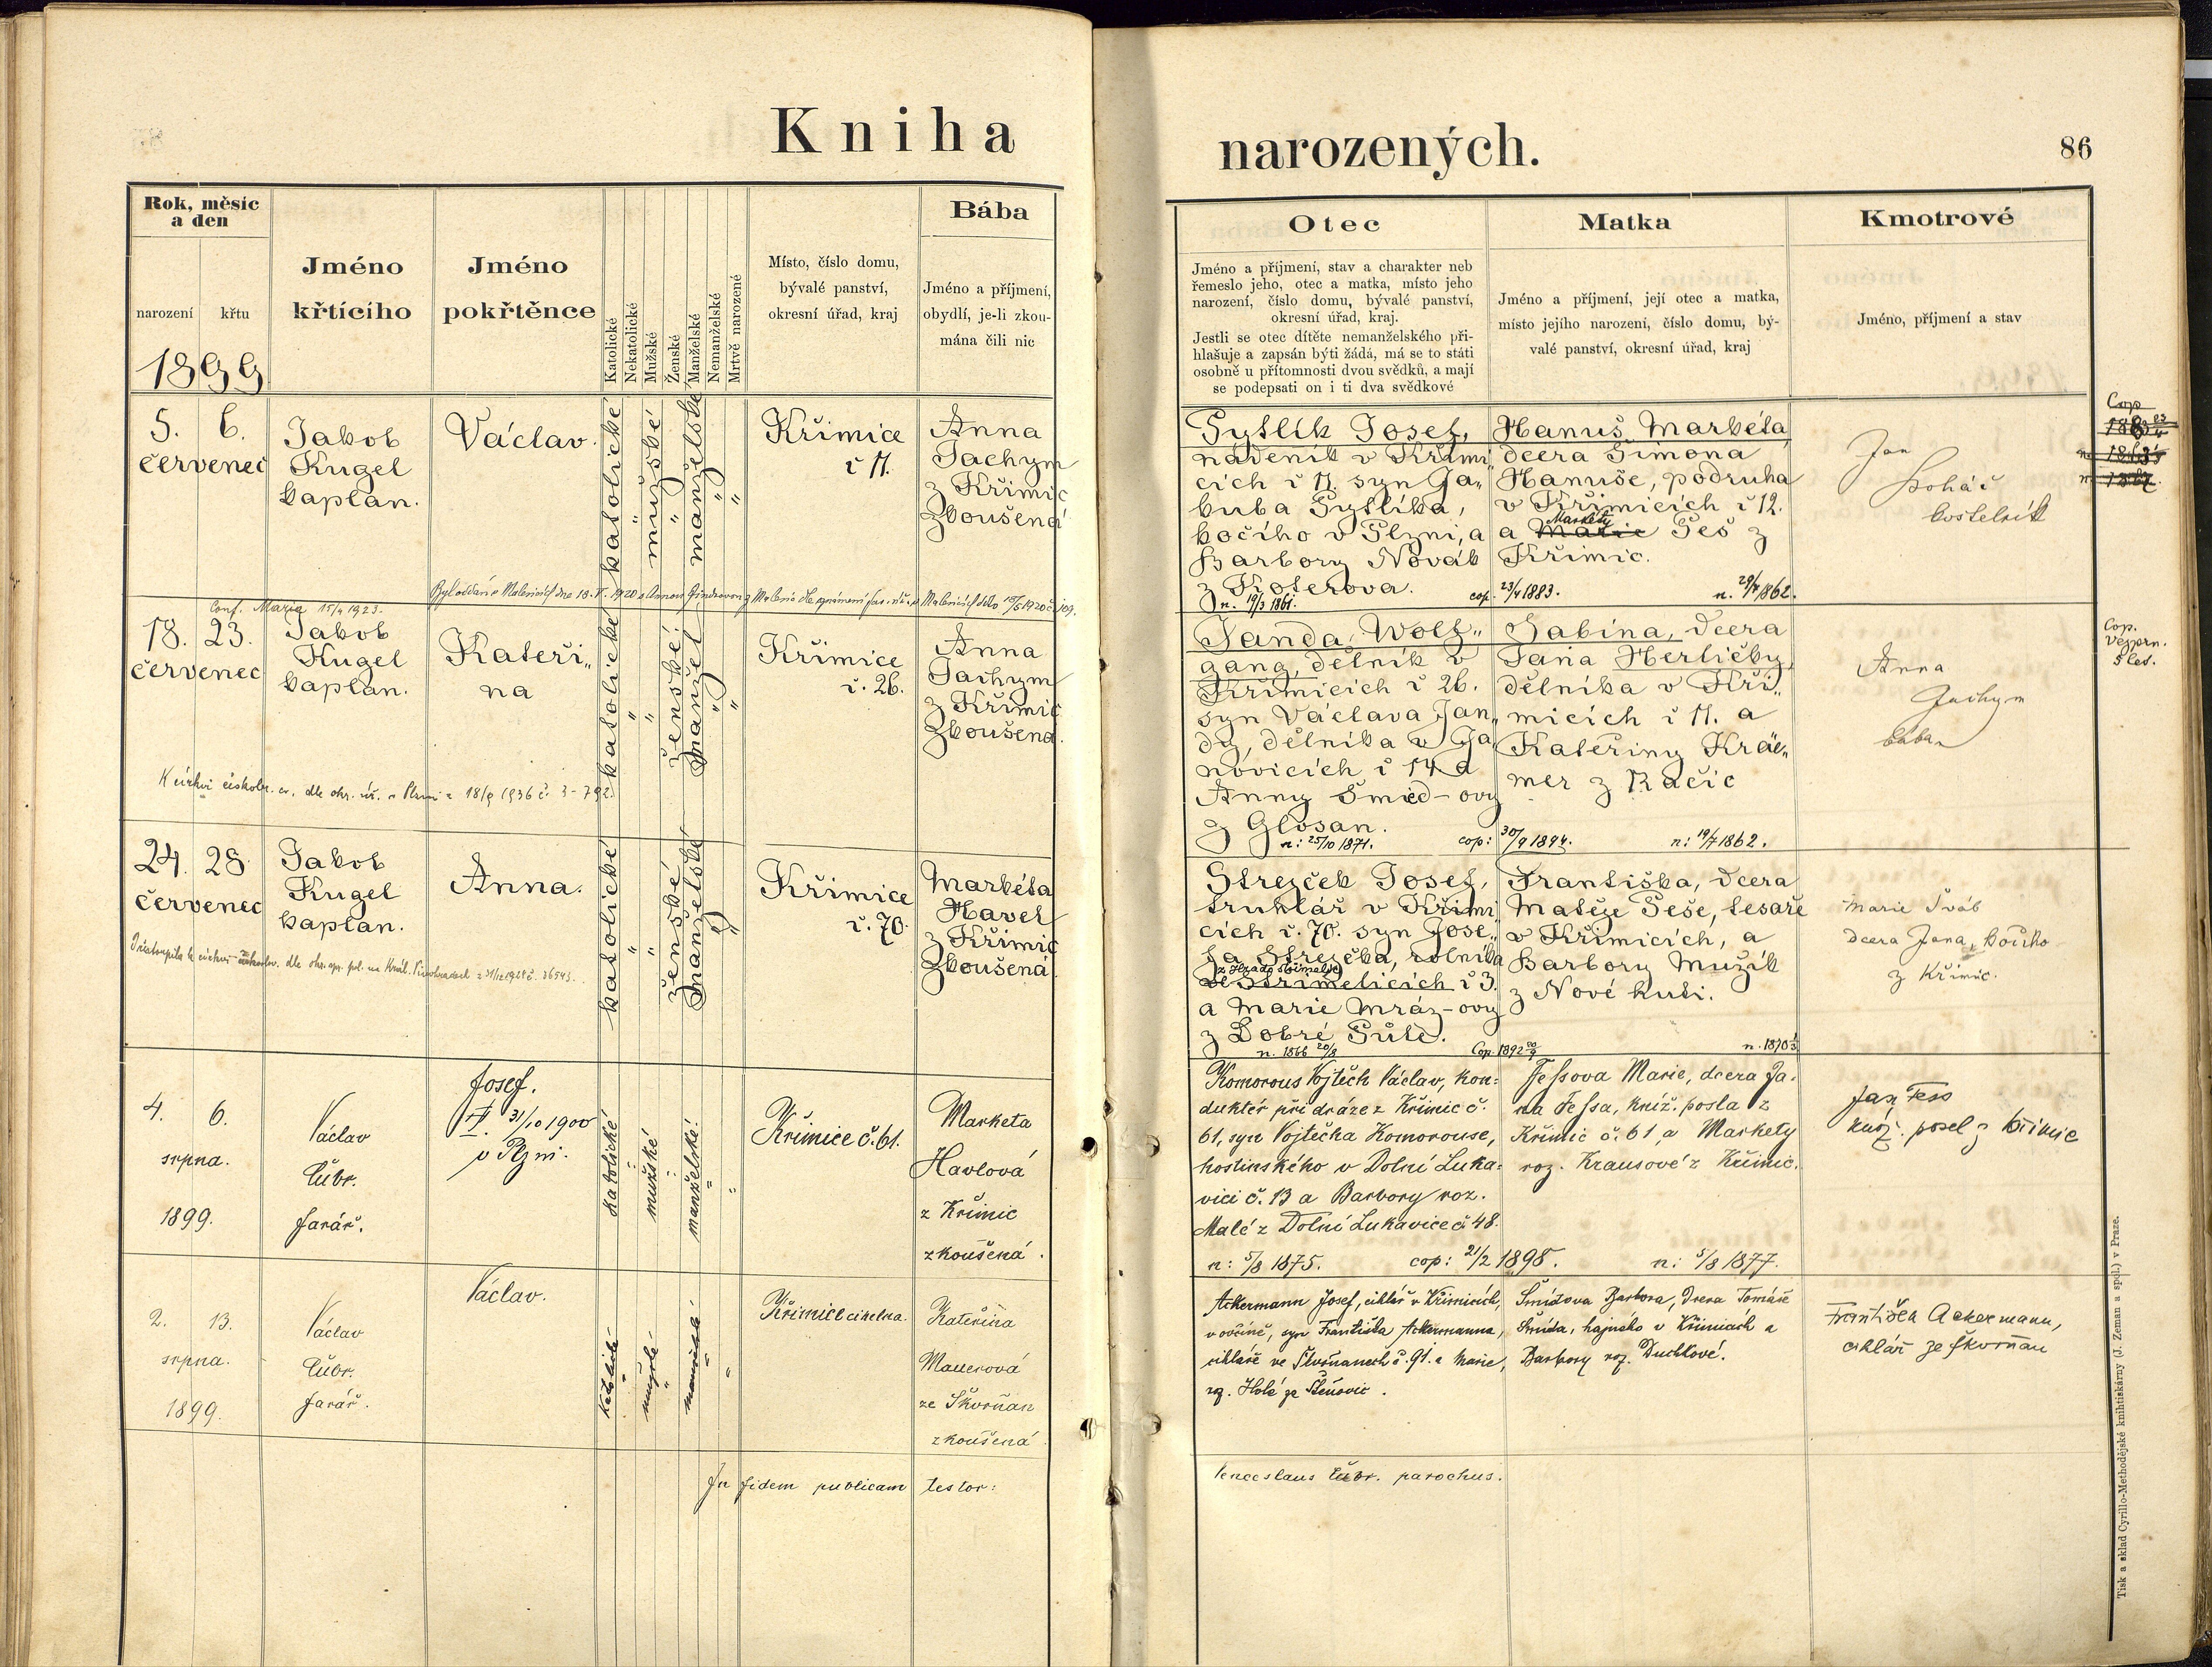 Kniha
narozených.
86
Rok, měsíc
a den
narození
křtu
1899
Jméno
křtícího
Jméno
pokřtěnce
Katolické
Nekatolické
Mužské
Ženské
Manželské
Nemanželské
Mrtvě narozené
Místo, číslo domu,
bývalé panství,
okresní úřad, kraj
Bába
Jméno a příjmení,
obydlí, je-li zkou-
mána čili nic
Otec
Jméno a příjmení, stav a charakter neb
řemeslo jeho, otec a matka, místo jeho
narození, číslo domu, bývalé panství,
okresní úřad, kraj.
Jestli se otec dítěte nemanželského při-
hlašuje a zapsán býti žádá, má se to státi
osobně u přítomnosti dvou svědků, a mají
se podepsati on i ti dva svědkové
Matka
Jméno a příjmení, její otec a matka,
místo jejího narození, číslo domu, bý-
valé panství, okresní úřad, kraj
Kmotrové
Jméno, příjmení a stav
5. 6.
červenec
Jakob
Kugel
kaplan.
Václav.
katolické
"
mužské
"
manželské
"
"
Křimice
č 11.
Anna
Jachym
z Křimic
Zkoušená
Pytlík Josef,
nádeník v Křimi„
cích č 11. syn Ja„
kuba Pytlíka,
kočího v Plzni, a
Barbory Novák
z Koterova.
n. 19/3 1861.
cop. 23/4 1883.
Hanuš Markéta
dcera Šimona
Hanuše, podruha
v Křimicích č 12.
Markéty
a Marie Peš z
Křimic.
n. 29/4 1862.
Jan
Boháč
kostelník
Cop
Conf. Maria 15/4 1923.
18. 23.
červenec
Jakob
Kugel
kaplan.
Kateři„
na
katolické
"
"
ženské
manžel
"
"
Křimice
č. 26.
Anna
Jachym
z Křimic
Zkoušená.
Janda Wolf„
gang, dělník v
Křimicích č 26.
syn Václava Jan„
dy, dělníka v Ja
novicích č 14 a
Anny Šmíd-ovy
z Glosan.
n: 25/10 1871.
cop: 30/9 1894.
Sabina, dcera
Jana Herličky,
dělníka v Kři„
micích č 11. a
Kateřiny Krae„
mer z Račic
n: 19/7 1862.
Anna
Jachym
bába
Cop.
Vejprn.
5 let.
K církvi českobr. ev. dle okr. úř. v Plzni z 18/9 1936 č. 3-792.
24. 28
červenec
Jakob
Kugel
kaplan.
Anna.
katolické
"
"
ženské
manželské
"
"
Křimice
č. 70.
Markéta
Havel
z Křimic
Zkoušená
Strejček Josef,
truhlář v Křimi
cích č. 70. syn Jose„
fa Strejčka, rolníka
ve Střimelicích č 3.
a Marie Mráz-ovy
z Dobré Půle.
n. 1866 20/3
Cop. 1892 20/9
Františka, dcera
Matěje Peše, tesaře
v Křimicích, a
Barbory Mužík
z Nové huti.
Marie Šváb
dcera Jana, kočího
z Křimic.
4. 6.
srpna.
1899.
Václav
Čubr.
farář.
Josef.
II. 31/10 1900
v Plzni.
katolické
mužské
manželské.
Křimice č. 61.
Marketa
Havlová
z Křimic
zkoušená.
Komorous Vojtěch Václav, kon-
duktér při dráze z Křimic č.
61, syn Vojtěcha Komorouse,
hostinského v Dolní Luka-
vici č. 13 a Barbory roz.
Malé z Dolní Lukavice č. 48.
n: 5/8 1875.
cop: 21/2 1898.
Fessova Marie, dcera Ja-
na Fessa, kníž. posla z
Křimic č. 61 a Markety
roz. Krausové z Křimic.
n: 5/8 1877.
Jan Fess
kníž. posel z Křimic
2. 13.
srpna.
1899.
Václav
Čubr.
farář.
Václav.
katolické
mužské
manželské
Křimice cihelna.
Kateřina
Mauerová
ze Skvrňan
zkoušená
Ackermann Josef, cihlář v Křimicích,
v ovčíně, syn Františka Ackermanna,
cihláře ve Skvrňanech č. 91. a Marie,
roz. Holé ze Štěnovic.
Šmídova Barbora, dcera Tomáše
Šmída, hajného v Křimicích a
Barbory roz. Duchkové.
František Ackermann,
cihlář ze Skvrňan
In fidem publicam testor:
Venceslaus Čubr. parochus.
Tisk a sklad Cyrillo-Methodějské knihtiskárny (J. Zeman a spol.) v Praze.